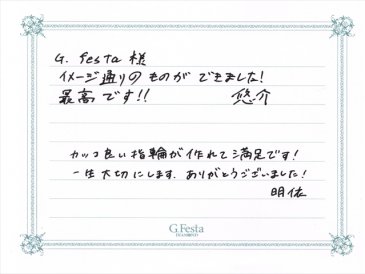 G. Festa 様
イメージ通りの ものが できました!
最高です!! 悠介
カッコ良い指輪が作れて満足です!
一生大切にします. ありがとうございました!
明依
G.Festa
DIAMOND